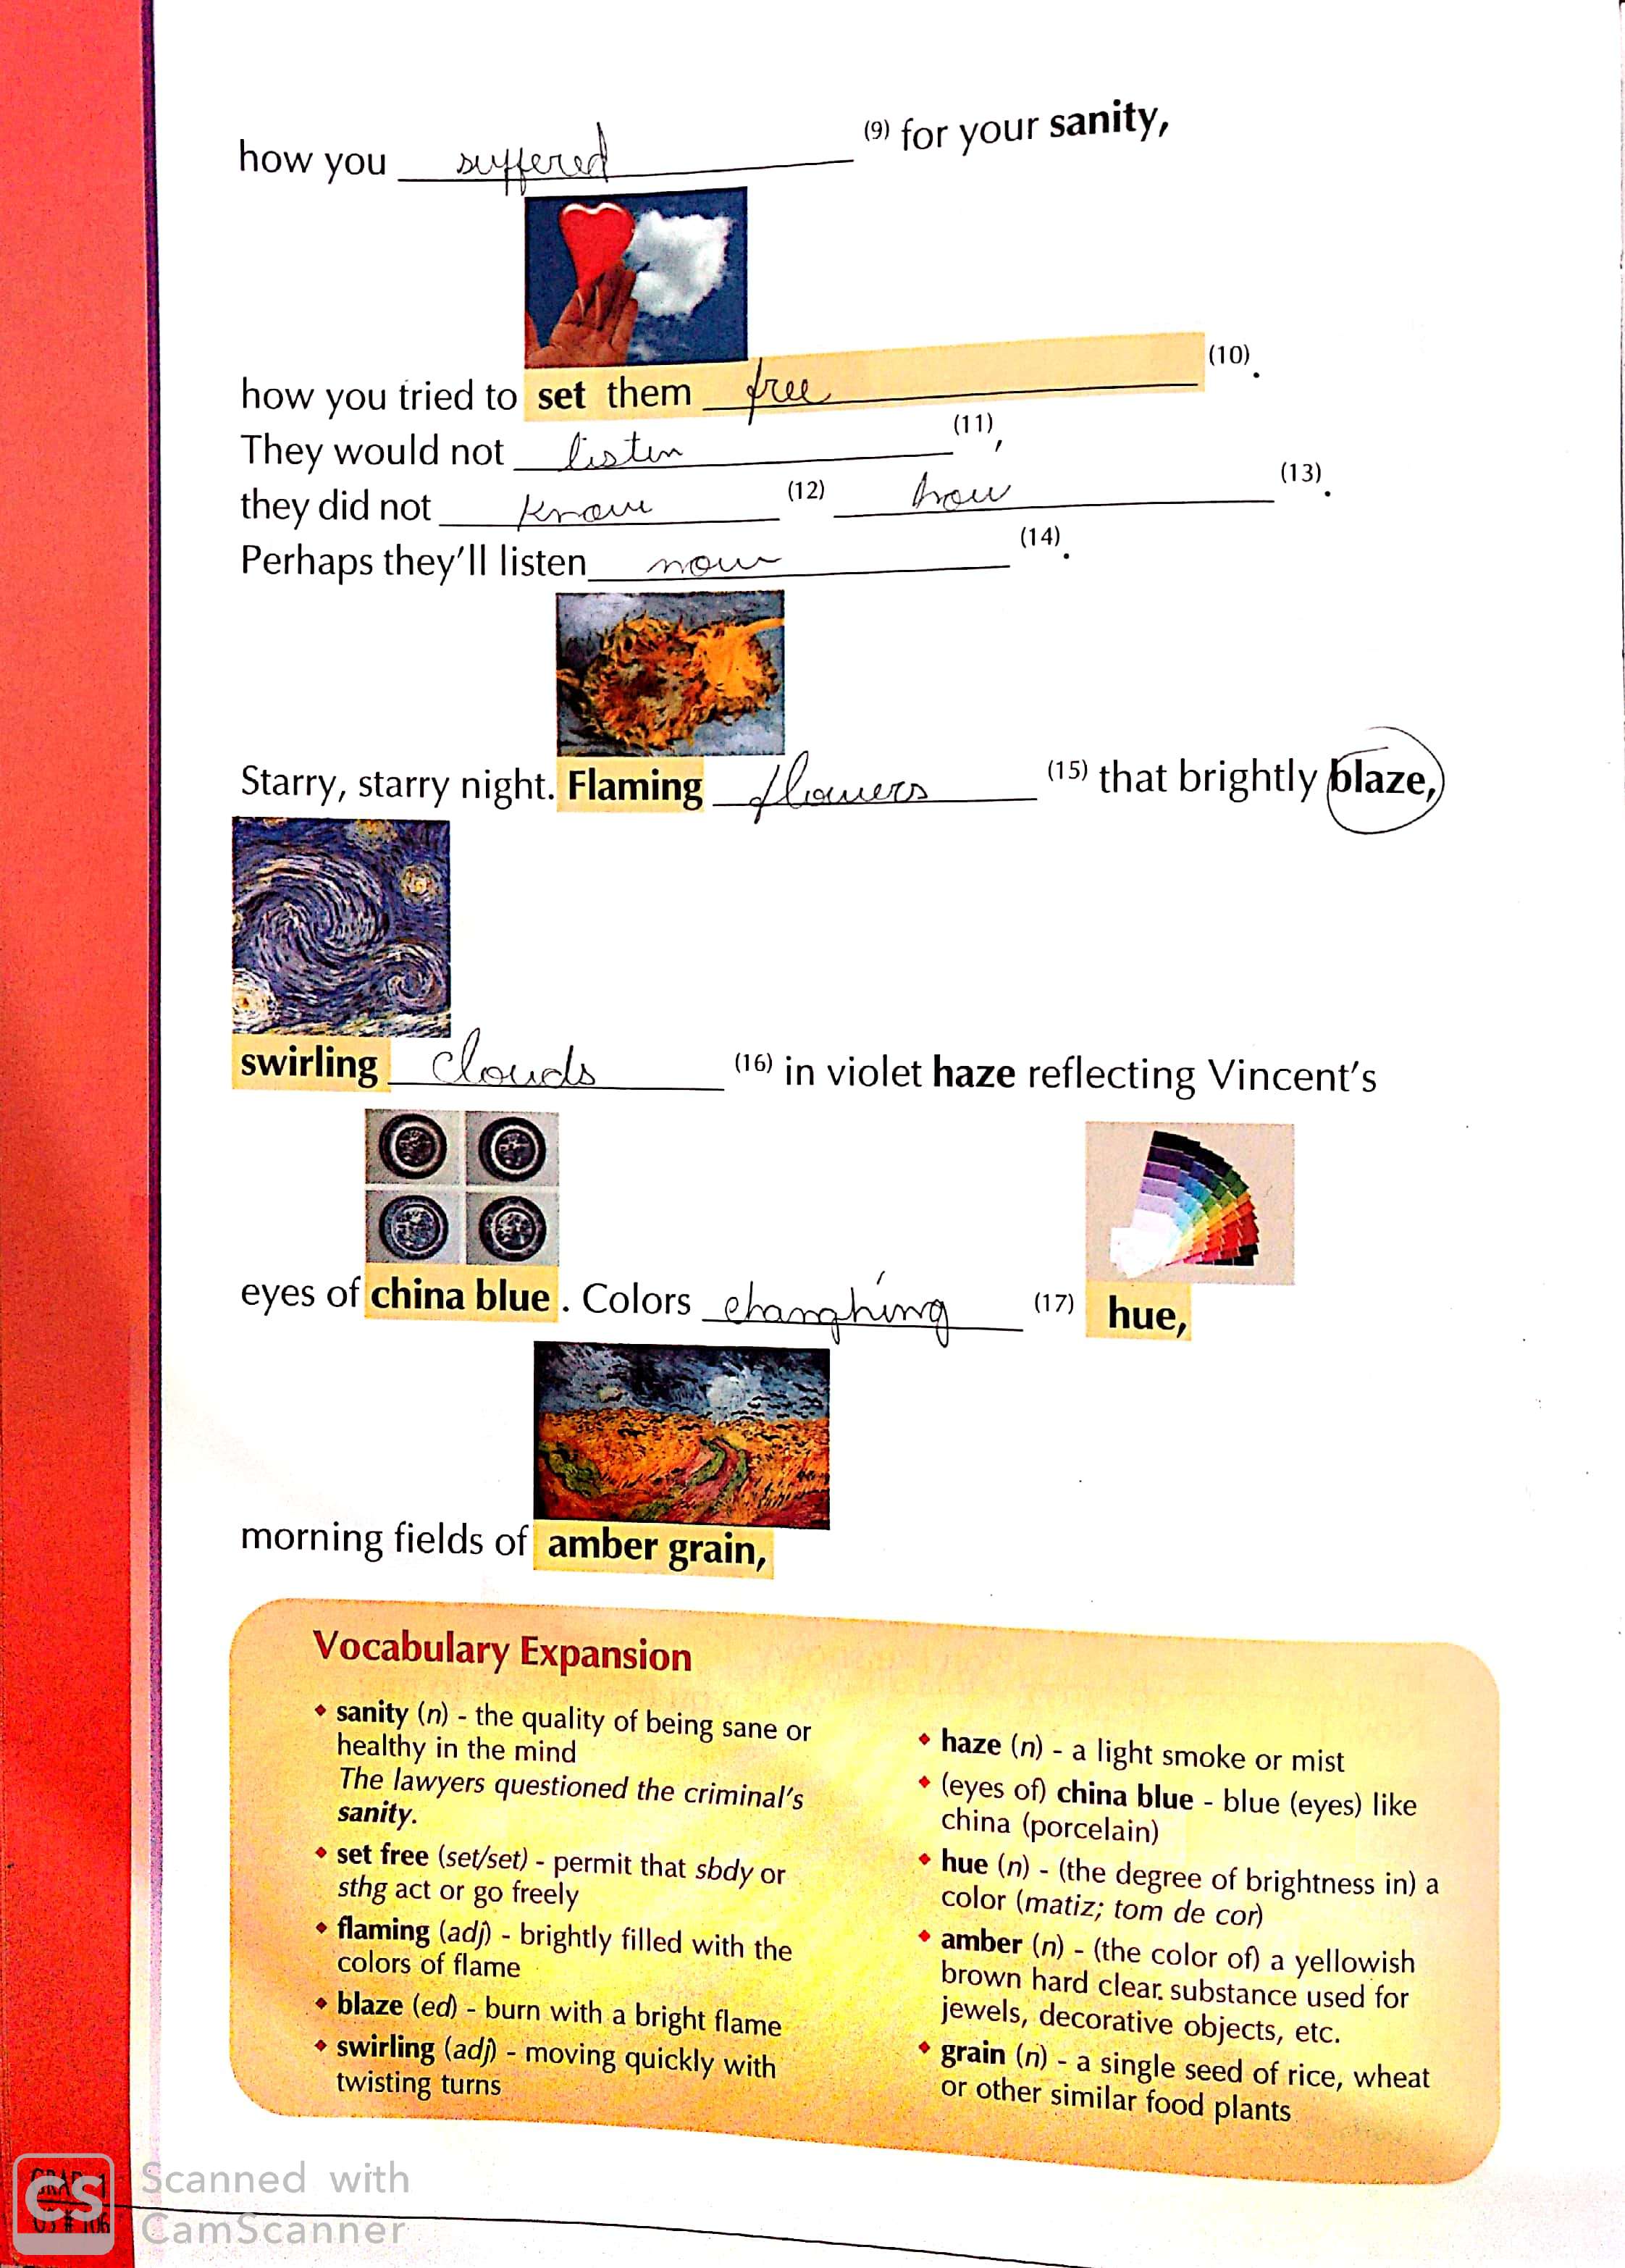 how you suffered (9) for your sanity,
how you tried to set them free (10).
They would not listen (11),
they did not know (12) how (13).
Perhaps they'll listen now (14).
Starry, starry night. Flaming flowers (15) that brightly blaze,
swirling clouds (16) in violet haze reflecting Vincent's
eyes of china blue. Colors changhing (17) hue,
morning fields of amber grain,
Vocabulary Expansion
• sanity (n) - the quality of being sane or
healthy in the mind
The lawyers questioned the criminal's
sanity.
• set free (set/set) - permit that sbdy or
sthg act or go freely
• flaming (adj) - brightly filled with the
colors of flame
• blaze (ed) - burn with a bright flame
• swirling (adj) - moving quickly with
twisting turns
• haze (n) - a light smoke or mist
• (eyes of) china blue - blue (eyes) like
china (porcelain)
• hue (n) - (the degree of brightness in) a
color (matiz; tom de cor)
• amber (n) - (the color of) a yellowish
brown hard clear substance used for
jewels, decorative objects, etc.
• grain (n) - a single seed of rice, wheat
or other similar food plants
CS
Scanned with
CamScanner